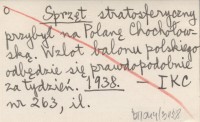 o Sprzęt stratosferyczny
przybył na Polanę Chochołow-
ską. Wzlot balonu polskiego
odbędzie się prawdopodobnie
za tydzień. 1938. — IKC
nr 263, il.